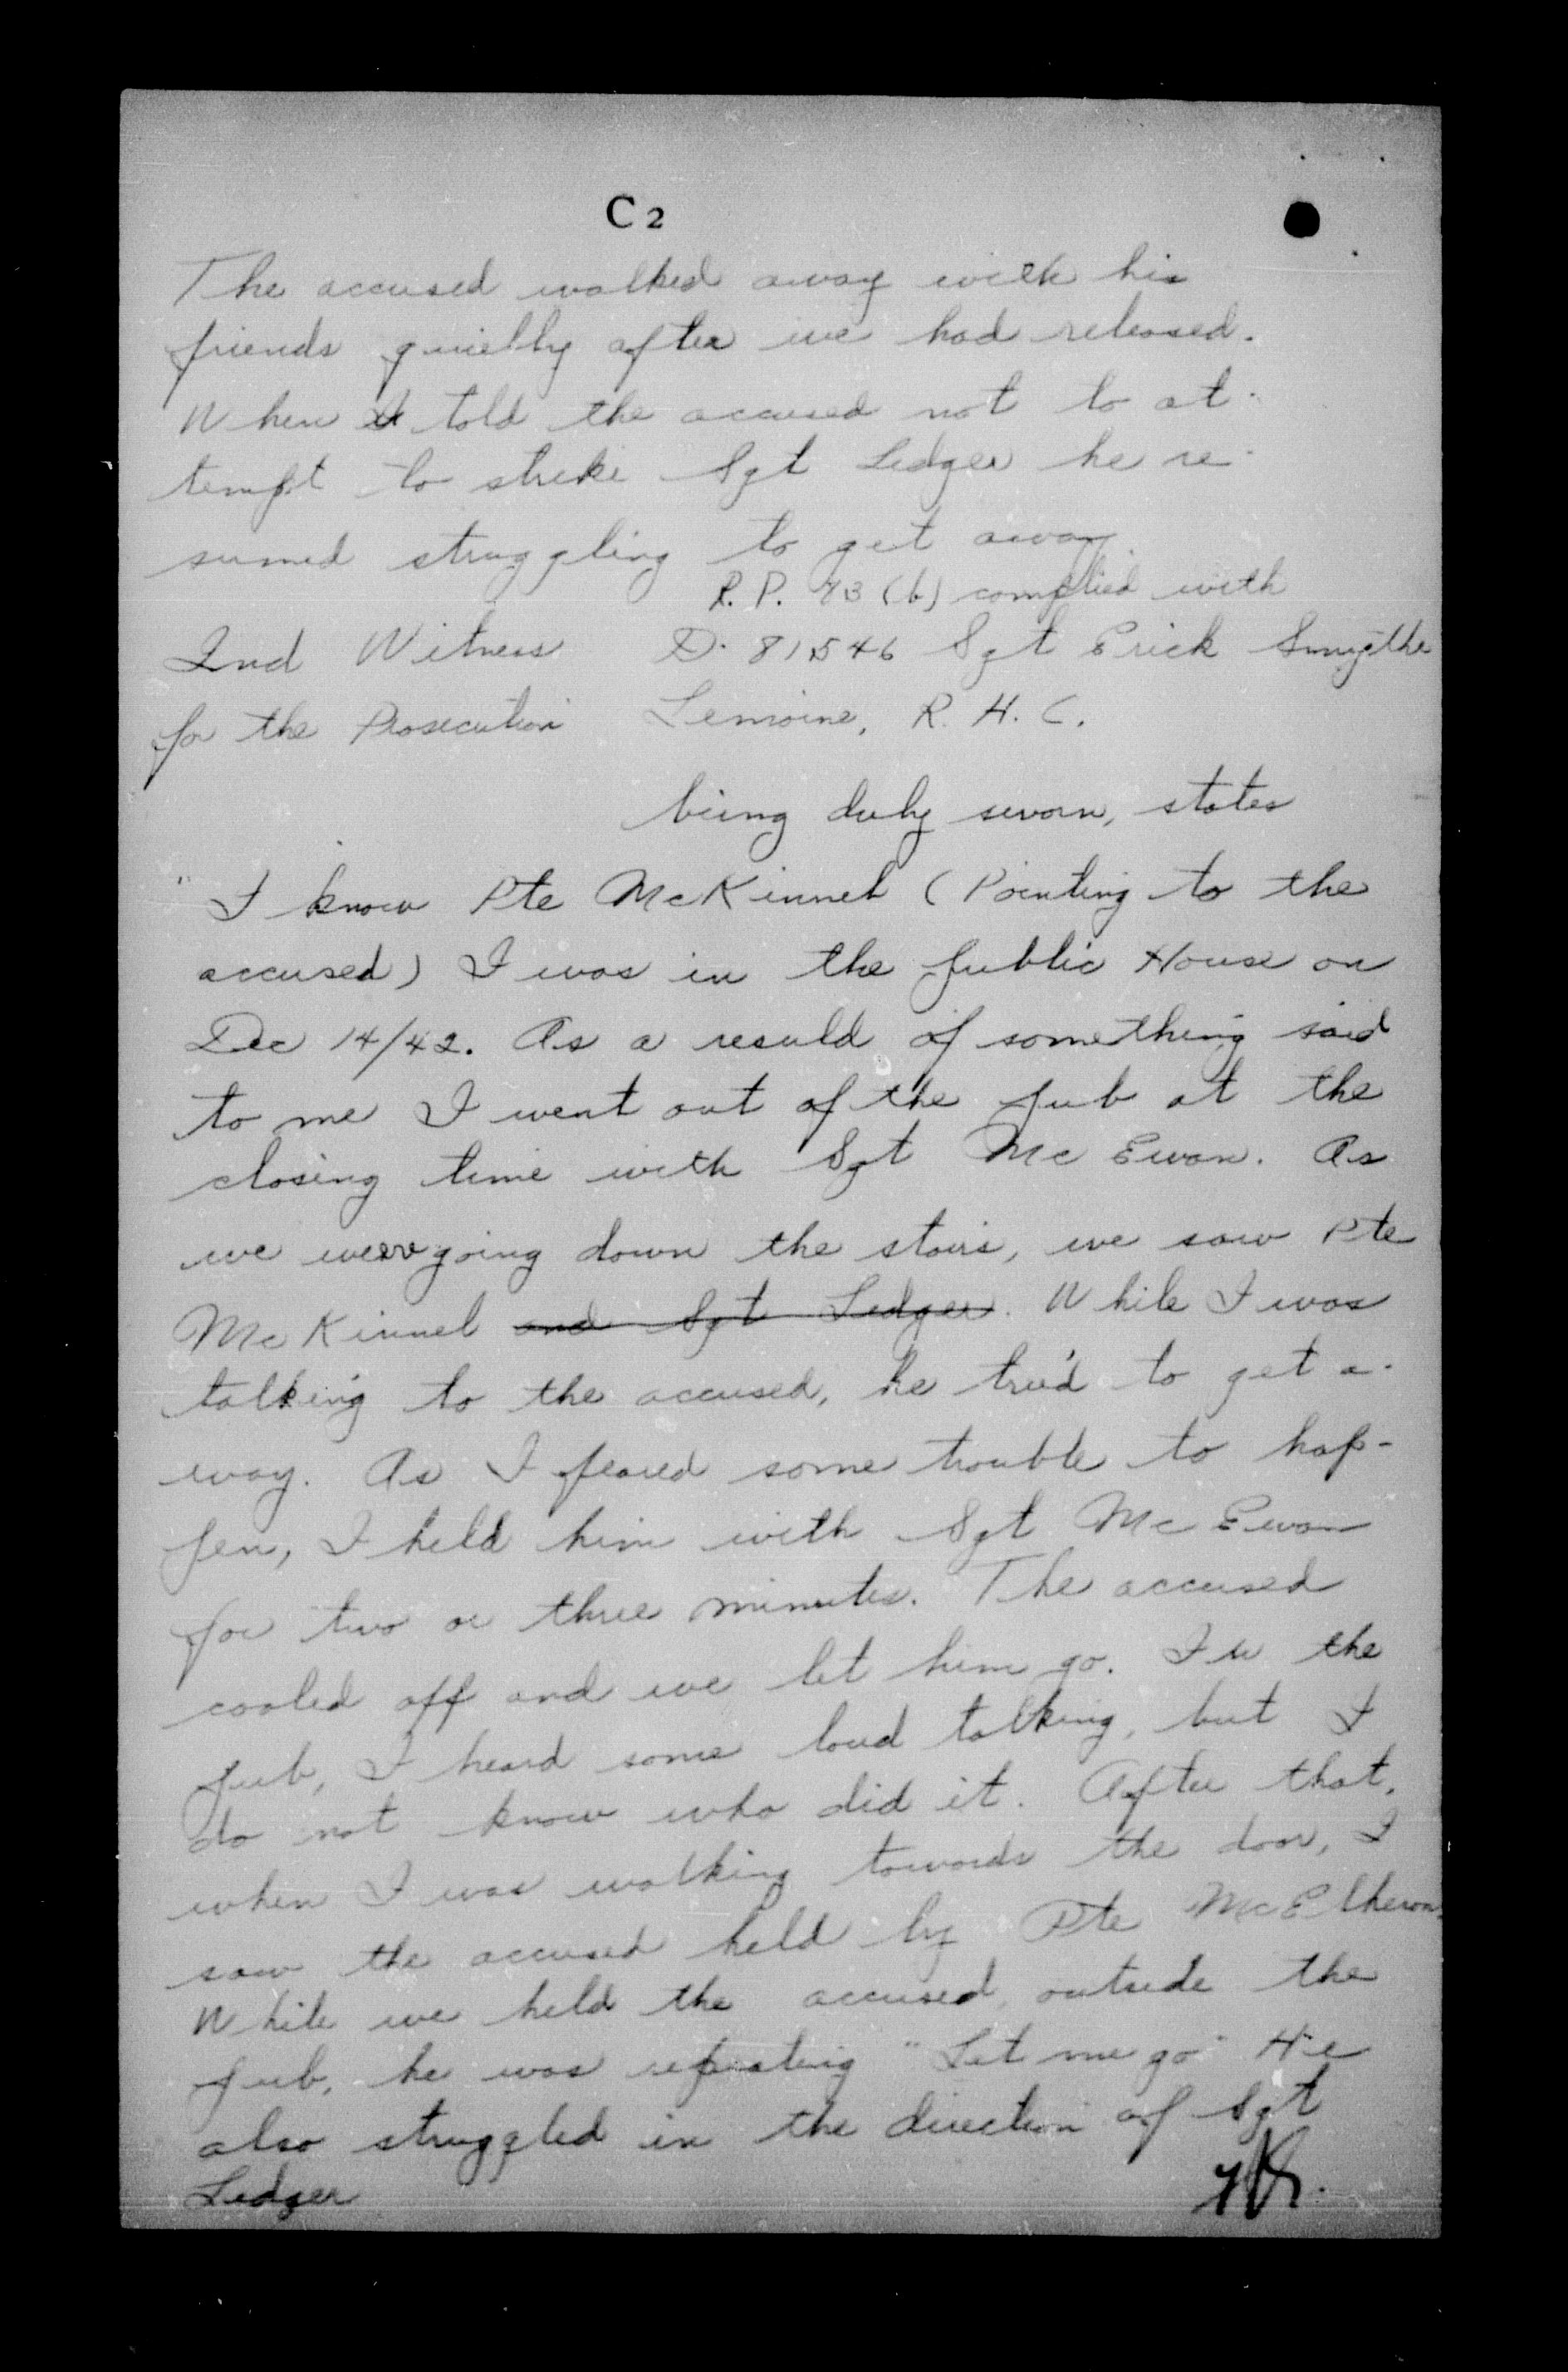 C 2
The accused walked away with his
friends quietly after we had released.
When I told the accused not to at-
tempt to strike Sgt Ledger he re-
sumed struggling to get away
R. P. 83 (b) complied with
2nd Witness D. 81546 Sgt Erick Smythe
for the Prosecution Lemoine, R. H. C.
being duly sworn, states
"I know Pte McKinnel (Pointing to the
accused) I was in the public House on
Dec 14/42. As a resuld of something said
to me I went out of the pub at the
closing time with Sgt Mc Ewan. As
we were going down the stairs, we saw Pte
McKinnel and Sgt Ledger. While I was
talking to the accused, he tried to get a-
way. As I feared some trouble to hap-
pen, I held him with Sgt Mc Ewan
for two or three minutes. The accused
cooled off and we let him go. In the
pub, I heard some loud talking, but I
do not know who did it. After that,
when I was walking towards the door, I
saw the accused held by Pte McElheron.
While we held the accused, outside the
pub, he was repeating "Let me go" He
also struggled in the direction of Sgt
Ledger